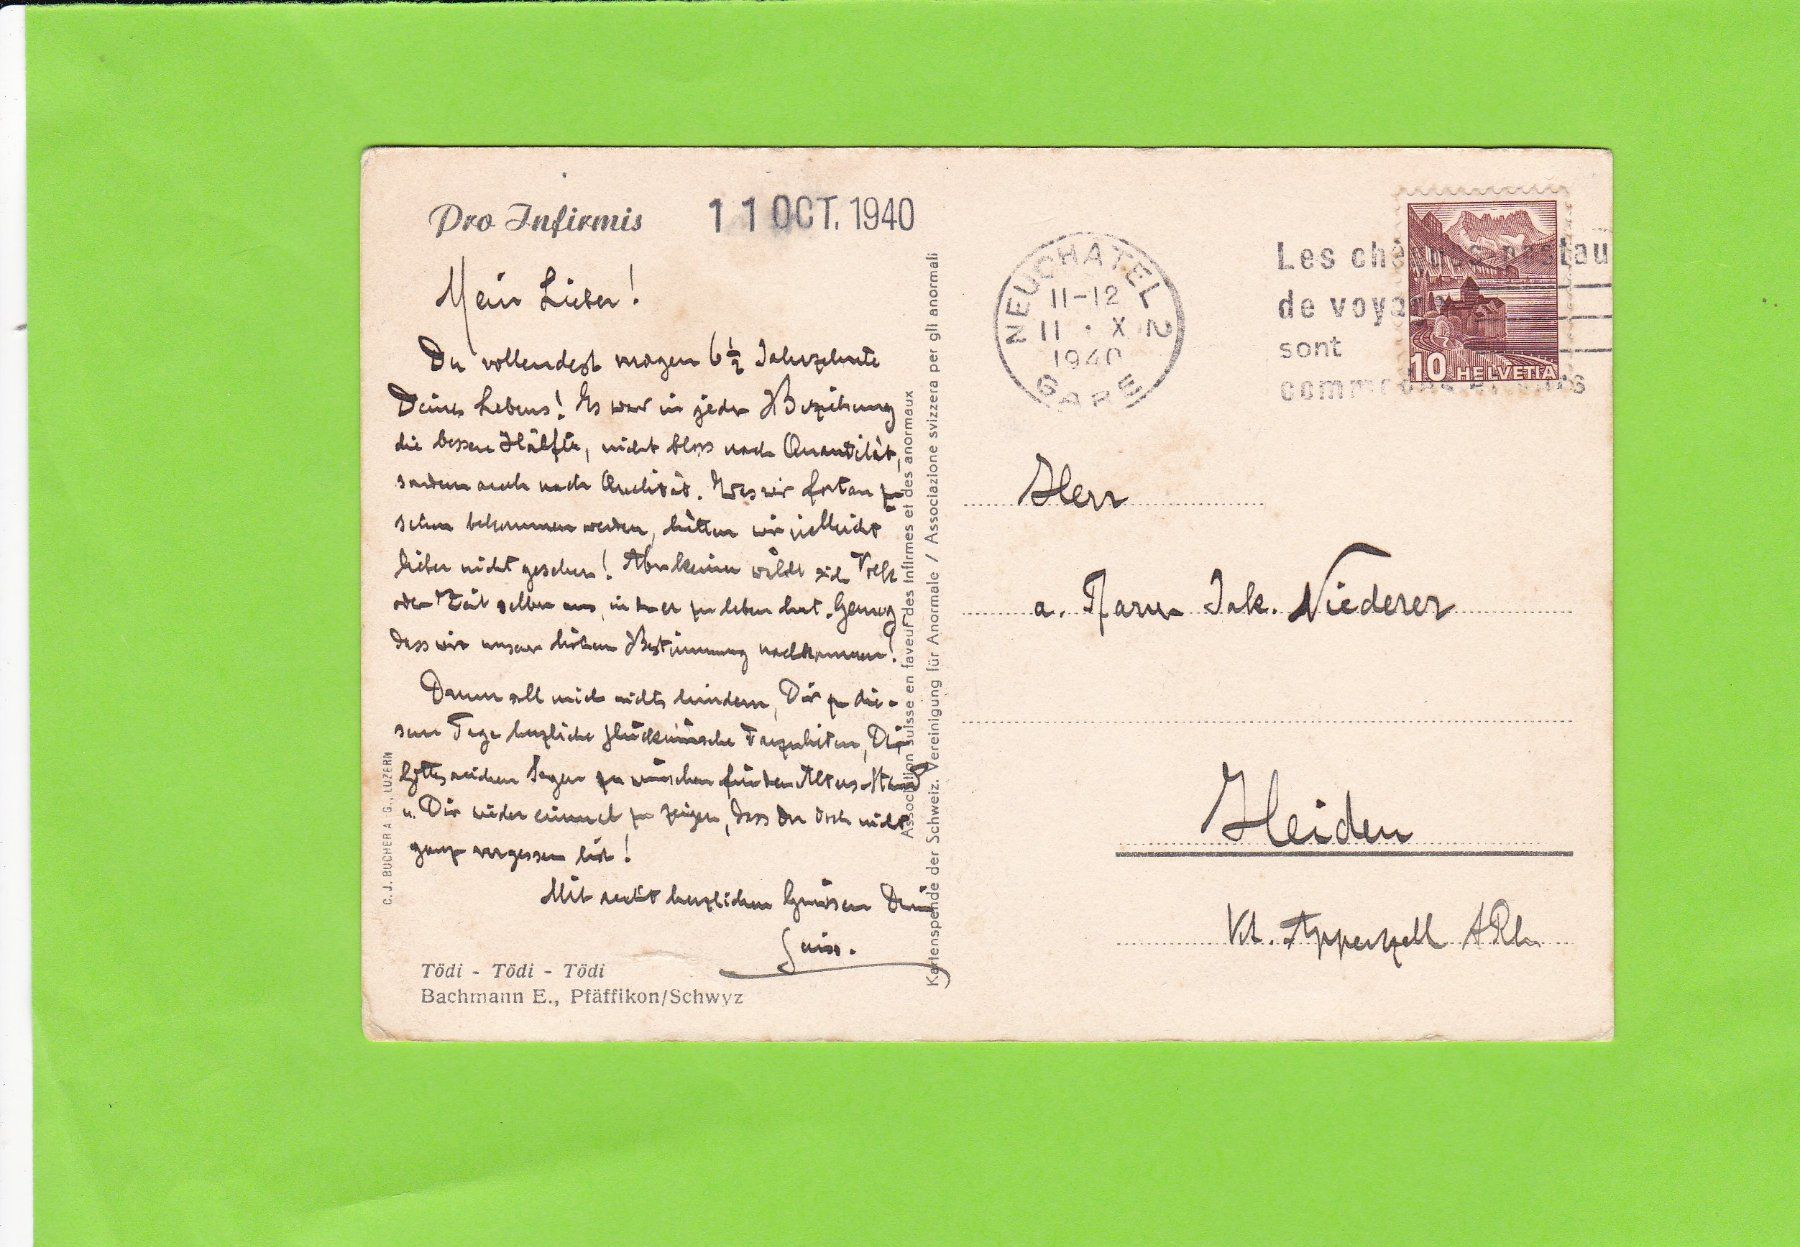 Pro Infirmis
11 OCT. 1940
Mein Lieber!
Du vollendest morgen 6 1/2 Jahrzehnte
Deines Lebens! Es war in jeder Beziehung
die bessere Hälfte, nicht bloss nach Quantität,
sondern auch nach Qualität. Was wir fortan zu
sehen bekommen werden, hätten wir vielleicht
lieber nicht gesehen! Aber keiner wählt sich Volk
oder Zeit selber aus, in der er zu leben hat. Genug,
dass wir unserer Bestimmung nachkommen!
Darum soll mich nichts hindern, Dir zu die-
sem Tage herzliche Glückwünsche Dir
Gottes reichen Segen zu wünschen für den
u. Dir wieder einmal zu zeigen, dass Du doch nicht
ganz vergessen bist!
Mit recht herzlichen Grüssen Dein
Tödi - Tödi - Tödi
Bachmann E., Pfäffikon/Schwyz
C. J. BUCHER A. G., LUZERN
Association suisse en faveur des infirmes et des anormaux
Kartenspende der Schweiz. Vereinigung für Anormale / Associazione svizzera per gli anormali
NEUCHATEL 2
11-12
11 · X
1940
GARE
Les chèques postau
de voyage
sont
commodes et sûrs
10 HELVETIA
Herr
a. Pfarrer Jak. Niederer
Heiden
Kt. Appenzell ARh.